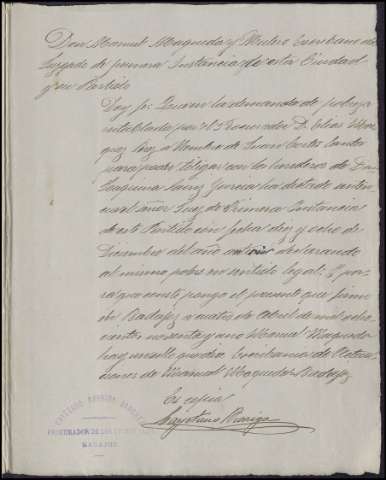 Don Manuel Maqueda y Mulero Escribano de
Juzgado de primera Instancia de esta Ciudad
y su Partido
Doy fé: Que en la demanda de pobreza
entablada por el Procurador D. Elias
á nombre de Juan Cortés
para poder litigar con los herederos de Don
García ha dictado
el Señor Juez de Primera Instancia
de este Partido con fecha diez y ocho de
Diciembre del año declarando
al mismo pobre en sentido legal. Y pa
ra que conste pongo el presente que firmo
en Badajoz a cuatro de Abril de mil ocho
cientos noventa y uno = Manuel Maqueda =
hay un sello que dice Escribania de Actua
ciones de Manuel Maqueda = Badajoz
Es copia
Cayetano Barriga
CAYETANO BARRIGA
PROCURADOR DE LOS TRIBUNALES
BADAJOZ